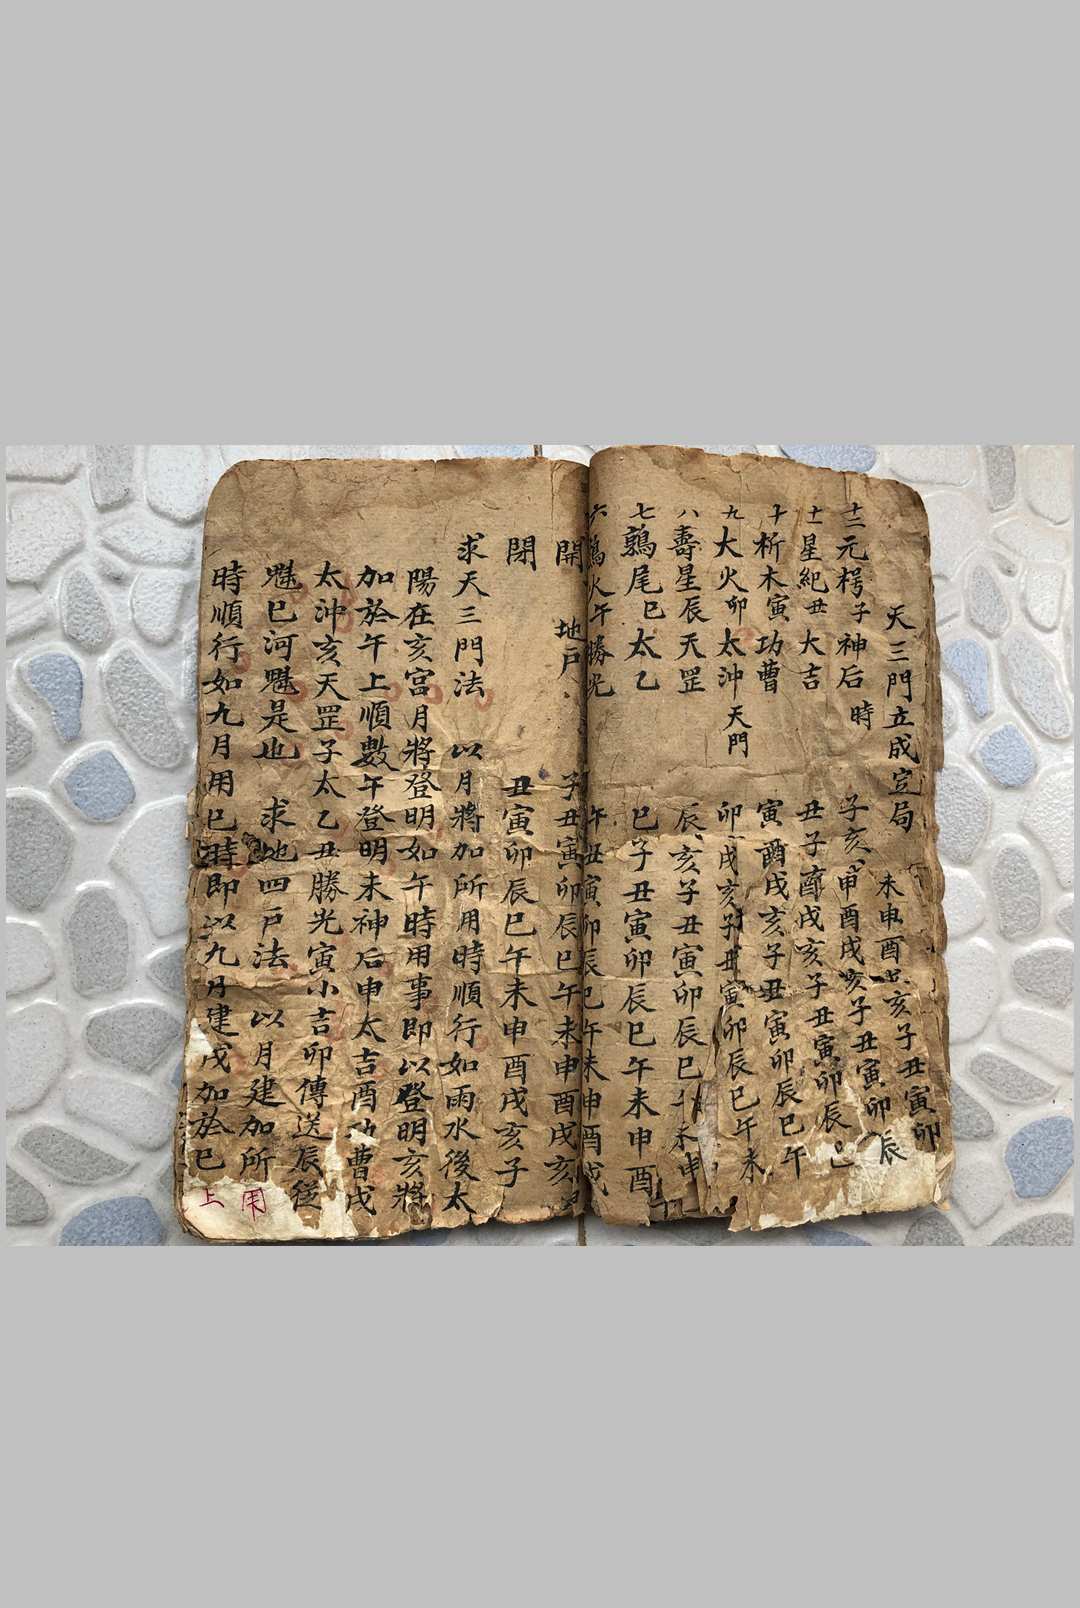 天三門立成定局 未申酉亥子丑寅卯
十二元枵子神后時 子亥申酉戌亥子丑寅卯辰
十一星紀丑大吉 丑子酉戌亥子丑寅卯辰巳
十析木寅功曹 寅酉戌亥子丑寅卯辰巳午
九大火卯太沖天門 卯戌亥子丑寅卯辰巳午未
八壽星辰天罡 辰亥子丑寅卯辰巳午未申
七鶉尾巳太乙 巳子丑寅卯辰巳午未申酉
六鶉火午勝光 午丑寅卯辰巳午未申酉戌
開 地戶 子丑寅卯辰巳午未申酉戌亥
閉 丑寅卯辰巳午未申酉戌亥子
求天三門法 以月將加所用時順行如雨水後太
陽在亥宮月將登明如午時用事即以登明亥將
加於午上順數午登明未神后申太吉酉功曹戌
太沖亥天罡子太乙丑勝光寅小吉卯傳送辰從
魁巳河魁是也 求地四戶法 以月建加所用
時順行如九月用巳時即以九月建戌加於巳上